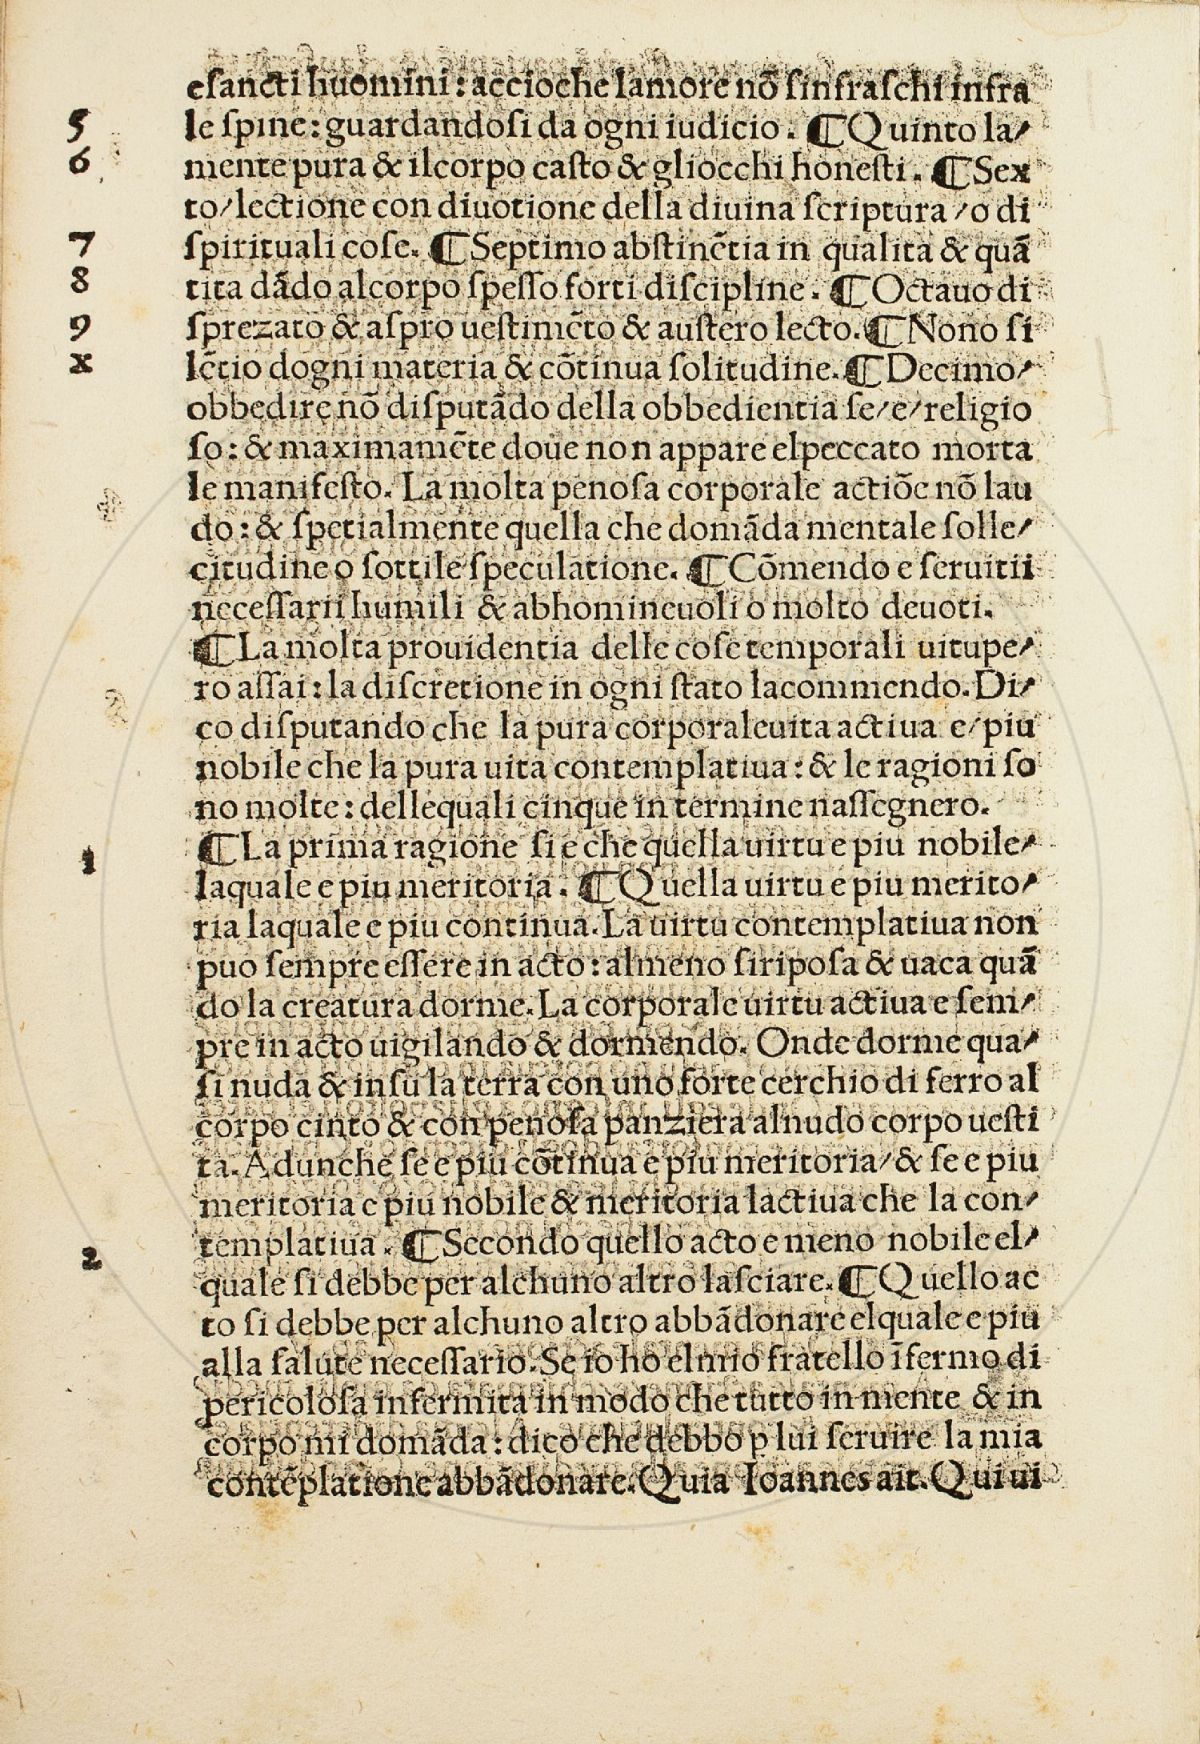 eſancti huomini: accioche lamore nō ſinfraſchi infra
5 le ſpine: guardandoſi da ogni iudicio. ¶ Quinto la/
6 mente pura & ilcorpo caſto & gliocchi honeſti. ¶ Sex
to/lectione con diuotione della diuina ſcriptura/o di
7 ſpirituali coſe. ¶ Septimo abſtinētia in qualita & quā
8 tita dādo alcorpo ſpeſſo forti diſcipline. ¶ Octauo di
9 ſprezato & aſpro ueſtimēto & auſtero lecto. ¶ Nono ſi
x lētio dogni materia & cōtinua ſolitudine. ¶ Decimo/
obbedire nō diſputādo della obbedientia ſe/e/religio
ſo: & maximamēte doue non appare elpeccato morta
le manifeſto. La molta penoſa corporale actiōe nō lau
do: & ſpetialmente quella che domāda mentale ſolle/
citudine o ſottile ſpeculatione. ¶ Cōmendo e ſeruitii
neceſſarii humili & abhomineuoli o molto deuoti.
¶ La molta prouidentia delle coſe temporali uitupe/
ro aſſai: la diſcretione in ogni ſtato lacommendo. Di/
co diſputando che la pura corporaleuita actiua e/piu
nobile che la pura uita contemplatiua: & le ragioni ſo
no molte: dellequali cinque in termine naſſegnero.
1 ¶ La prima ragione ſi e che quella uirtu e piu nobile/
laquale e piu meritoria. ¶ Quella uirtu e piu merito/
ria laquale e piu continua. La uirtu contemplatiua non
puo ſempre eſſere in acto: almeno ſiripoſa & uaca quā
do la creatura dorme. La corporale uirtu actiua e ſem/
pre in acto uigilando & dormendo. Onde dorme qua/
ſi nuda & inſu la terra con uno forte cerchio di ferro al
corpo cinto & con penoſa panziera alnudo corpo ueſti
ta. Adunche ſe e piu cōtinua e piu meritoria/& ſe e piu
meritoria e piu nobile & meritoria lactiua che la con/
2 templatiua. ¶ Secondo quello acto e meno nobile el/
quale ſi debbe per alchuno altro laſciare. ¶ Quello ac
to ſi debbe per alchuno altro abbādonare elquale e piu
alla ſalute neceſſario. Se io ho elmio fratello īfermo di
pericoloſa infermita in modo che tutto in mente & in
corpo mi domāda: dico che debbo p lui ſeruire la mia
contēplatione abbādonare. Quia Ioannes ait. Qui ui